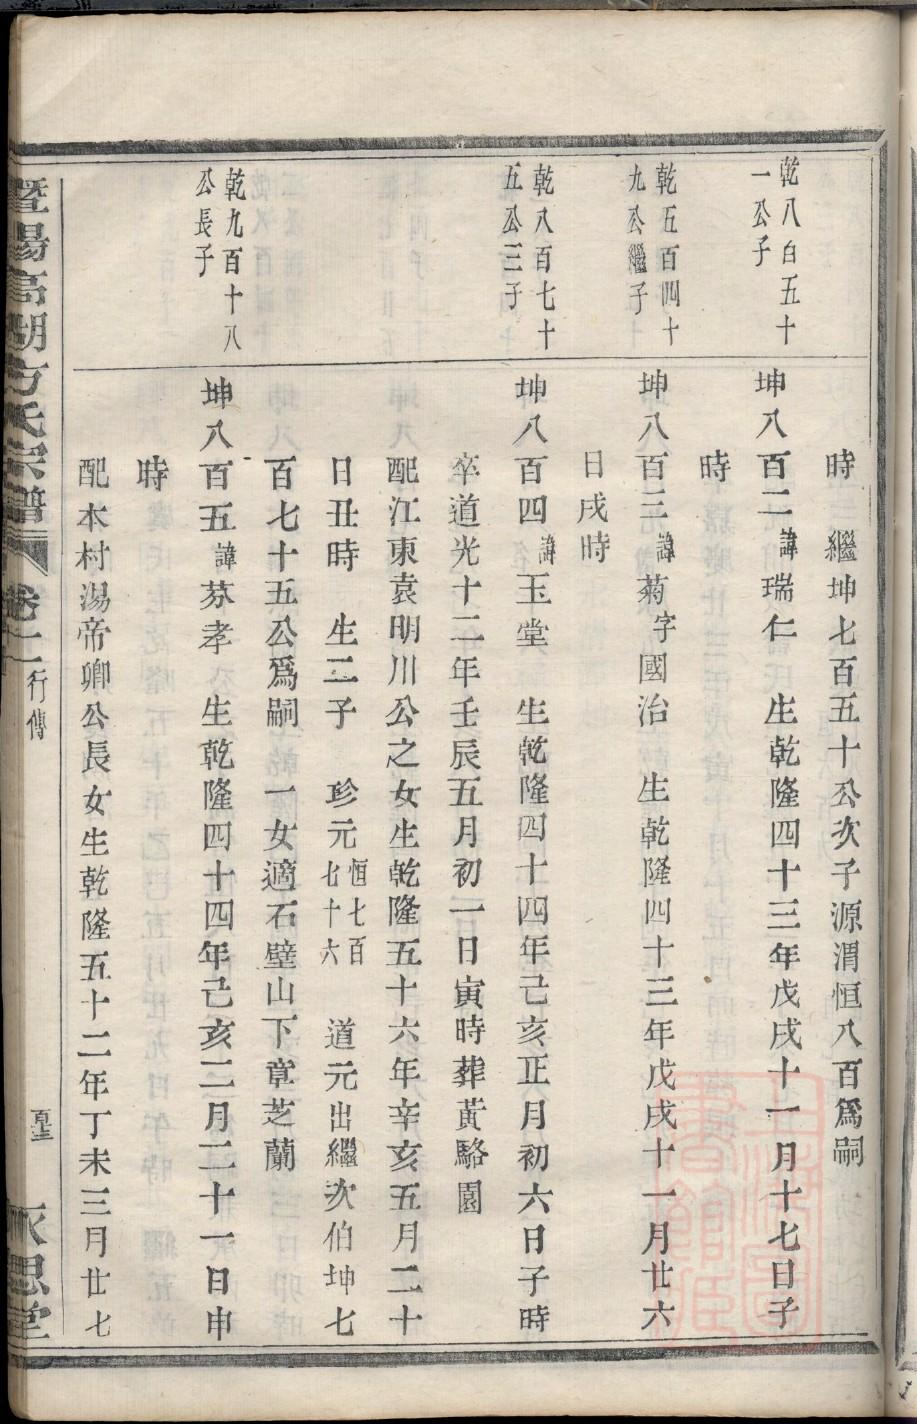 時　繼坤七百五十公次子源渭恒八百爲嗣
乾八百五十
一公子
坤八百二諱瑞仁　生乾隆四十三年戊戌十一月十七日子
時
乾五百四十
九公繼子
坤八百三諱菊字國治　生乾隆四十三年戊戌十一月廿六
日戌時
乾八百七十
五公三子
坤八百四諱玉堂　生乾隆四十四年己亥正月初六日子時
卒道光十二年壬辰五月初一日寅時葬黃駱園
配江東袁明川公之女生乾隆五十六年辛亥五月二十
日丑時　生二子　珍元恒七百七十六　道元出繼次伯坤七
百七十五公爲嗣　一女適石壁山下章芝蘭
乾九百十八
公長子
坤八百五諱芬孝　生乾隆四十四年己亥二月二十一日申
時
配木村湯帝卿公長女生乾隆五十二年丁未三月廿七
暨陽高湖方氏宗譜　卷十一　行傳　永思堂